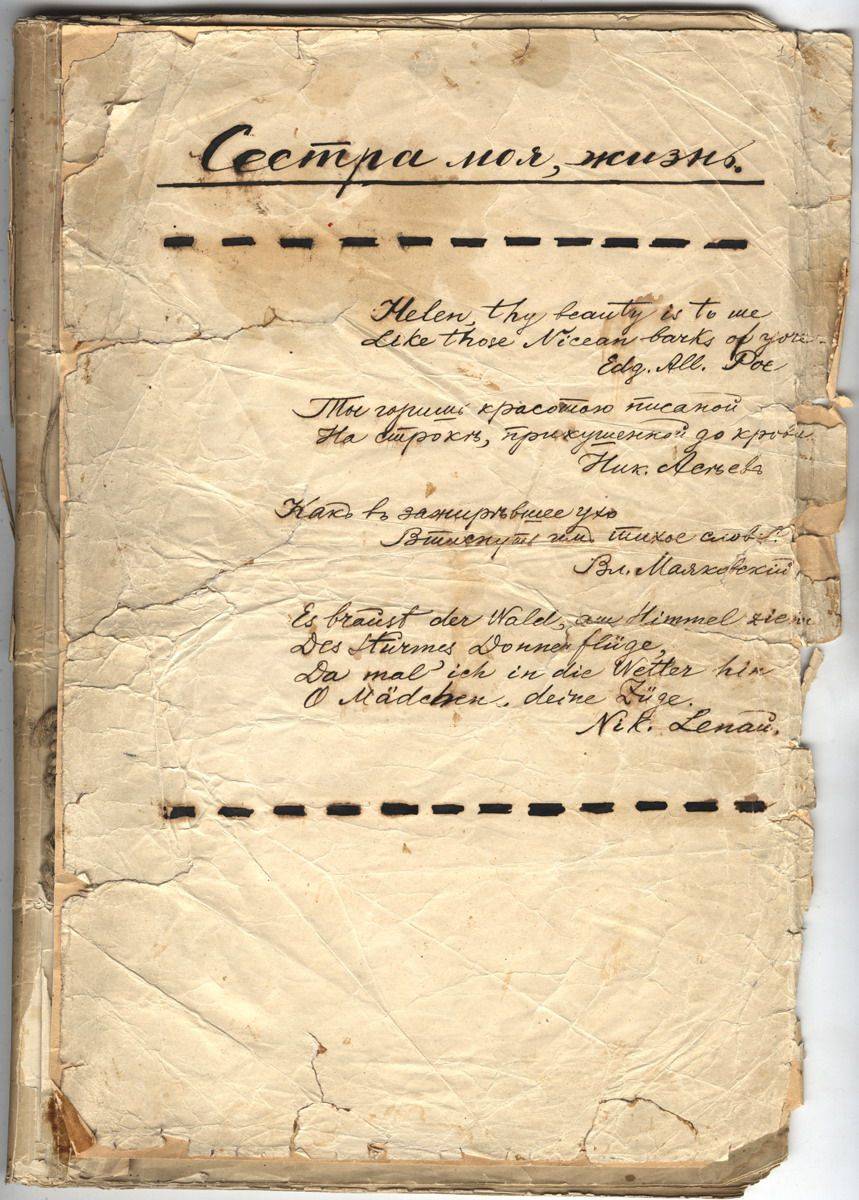 Сестра моя, жизнь.
Helen, thy beauty is to me
Like those Nicean barks of yore
Edg. All. Poe
Ты горишь красотою писаной
На строкѣ, прикушенной до крови
Ник. Асѣевъ
Какъ въ зажирѣвшее ухо
Втиснуть имъ тихое слово?
Вл. Маяковскій
Es braust der Wald, am Himmel ziehn
Des Sturmes Donnerflüge,
Da mal' ich in die Wetter hin
O Mädchen, deine Züge.
Nik. Lenau.